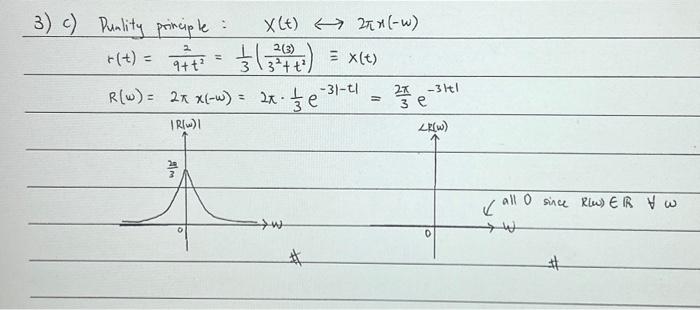 3) c) Duality principle : X(t) ⟷ 2πx(-w)
r(t) = 2/(9+t²) = 1/3 (2(3)/(3²+t²)) ≡ X(t)
R(w) = 2π x(-w) = 2π · 1/3 e^(-3|-t|) = 2π/3 e^(-3|t|)
|R(w)| ∠R(w)
2π/3
all 0 since R(w) ∈ ℝ ∀ w
0 → w 0 → w
# #